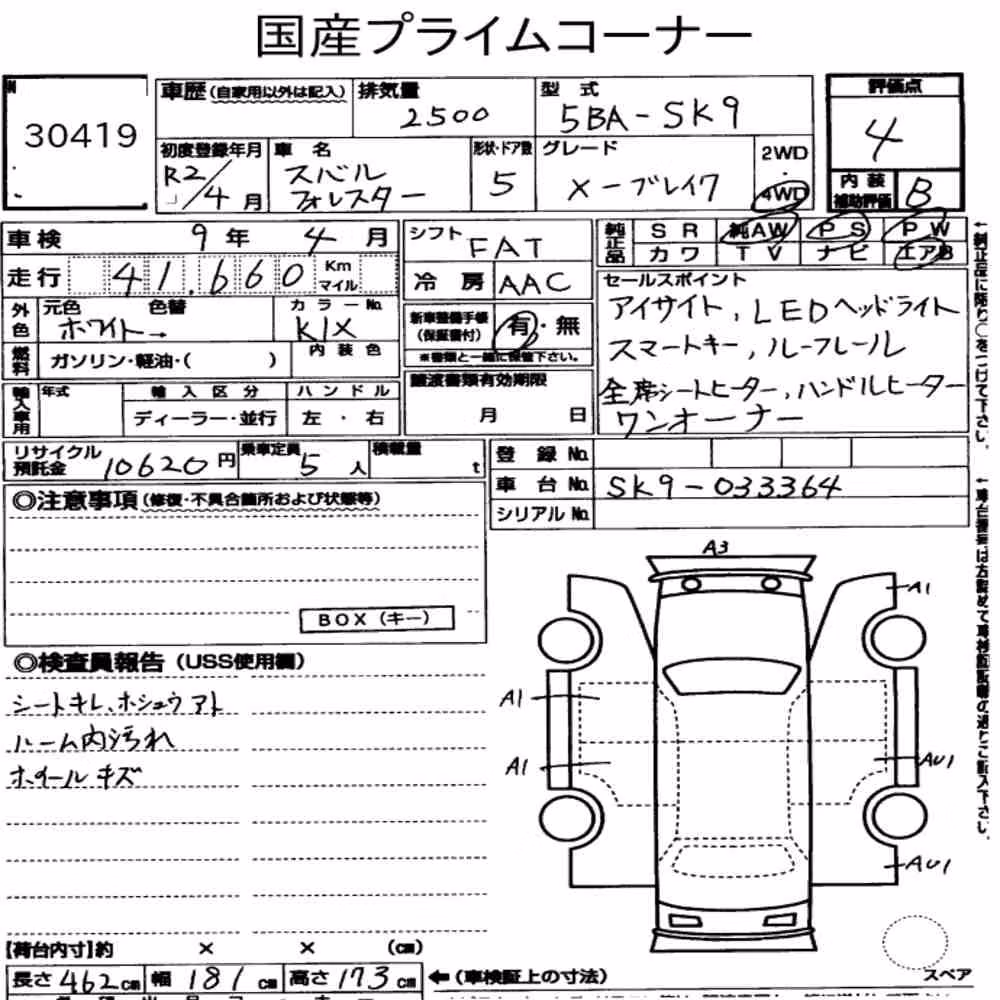 国産プライムコーナー
30419
車歴（自家用以外は記入） 排気量 2500 型式 5BA-SK9 評価点 4
初度登録年月 R2/4月 車名 スバル フォレスター 形状・ドア数 5 グレード X-ブレイク 2WD・4WD
内装補助評価 B
車検 9年 4月 シフト FAT 純正品 SR 純AW PS PW
カワ TV ナビ エアB
走行 41.660 Km マイル 冷房 AAC
外色 元色 ホワイト→ 色替 カラーNo. K1X
新車整備手帳（保証書付） 有・無
※書類と一緒に保管下さい。
燃料 ガソリン・軽油・（ ） 内装色
輸入車用 年式 輸入区分 ディーラー・並行 ハンドル 左・右
譲渡書類有効期限 月 日
セールスポイント
アイサイト，LEDヘッドライト
スマートキー，ルーフレール
全席シートヒーター，ハンドルヒーター
ワンオーナー
←純正品に限り○をつけて下さい。
リサイクル預託金 10620円 乗車定員 5人 積載量 t
登録No.
車台No. SK9-033364
シリアルNo.
←車台番号は左詰めで車検証記載の通りご記入下さい。
◎注意事項（修復・不具合箇所および状態等）
BOX（キー）
◎検査員報告（USS使用欄）
シートキレ、ホシュウアト
ルーム内汚れ
ホイールキズ
A3
A1
A1
A1
AU1
AU1
スペア
【荷台内寸】約 × × （cm）
長さ 462cm 幅 181cm 高さ 173cm ←（車検証上の寸法）